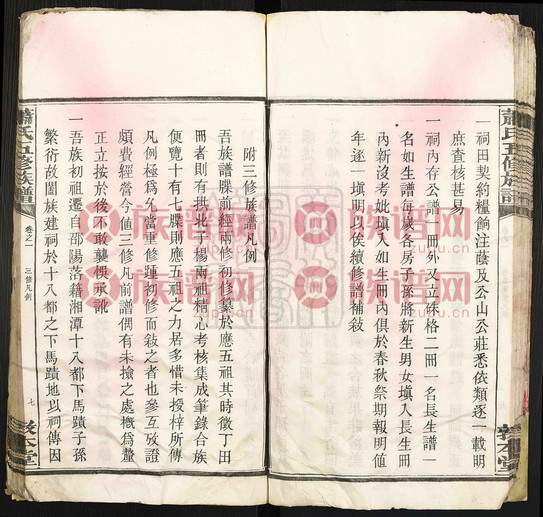 蕭氏五修族譜
一祠田契約糧餉注蔭及公山公莊悉依類逐一載明
庶查核甚易
一祠內存公譜一冊外又立硃格二冊一名長生譜一
名如生譜每歲各房子孫將新生男女填入長生冊
內新沒考妣填入如生冊內俱於春秋祭期報明值
年逐一填明以俟續修譜補敍
敦本堂
附三修族譜凡例
吾族譜牒前經兩修初修纂於應五祖其時徵丁田
冊者則有拱北子楊兩祖精心考核集成筆錄合族
便覽十有七牒則應五祖之力居多惜未授梓所傳
凡例極為允當重修踵初修而敍之者也參互攷證
頗費經營今值三修凡前譜偶有未撿之處槪為釐
正立按於後不敢襲悞承訛
一吾族初祖遷自邵陽落籍湘潭十八都下馬蹟子孫
繁衍故闔族建祠於十八都之下馬蹟地以祠傳因
蕭氏五修族譜
卷之一
三修凡例
七
敦本堂
族譜网